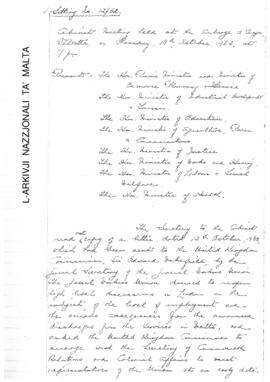 Sitting No. 12/62.
Cabinet Meeting held at the Auberge d'Aragon
Valletta, on Thursday, 18th October 1962, at
7 pm.
Present: The Hon. Prime Minister and Minister of
Economic Planning and Finance
The Hon. Minister of Industrial Development
& Tourism
The Hon. Minister of Education
The Hon. Minister of Agriculture, Power
& Communications
The Hon. Minister of Justice
The Hon. Minister of Works and Housing
The Hon. Minister of Labour & Social
Welfare
The Hon. Minister of Health
The Secretary to the Cabinet
read a copy of a letter dated 12th October 1962,
which had been sent to the United Kingdom
Commissioner, Sir Edward Wakefield, by the
General Secretary of the General Workers Union.
The General Workers Union desired to reopen
high level discussions in London on the
subject of the level of employment and
the serious consequences from the announced
discharges from the Services in Malta, and
asked the United Kingdom Commissioner to
arrange with the Secretary of Commonwealth
Relations and Colonial Affairs to meet
representatives of the Union at an early date.
L-ARKIVJI NAZZJONALI TA' MALTA